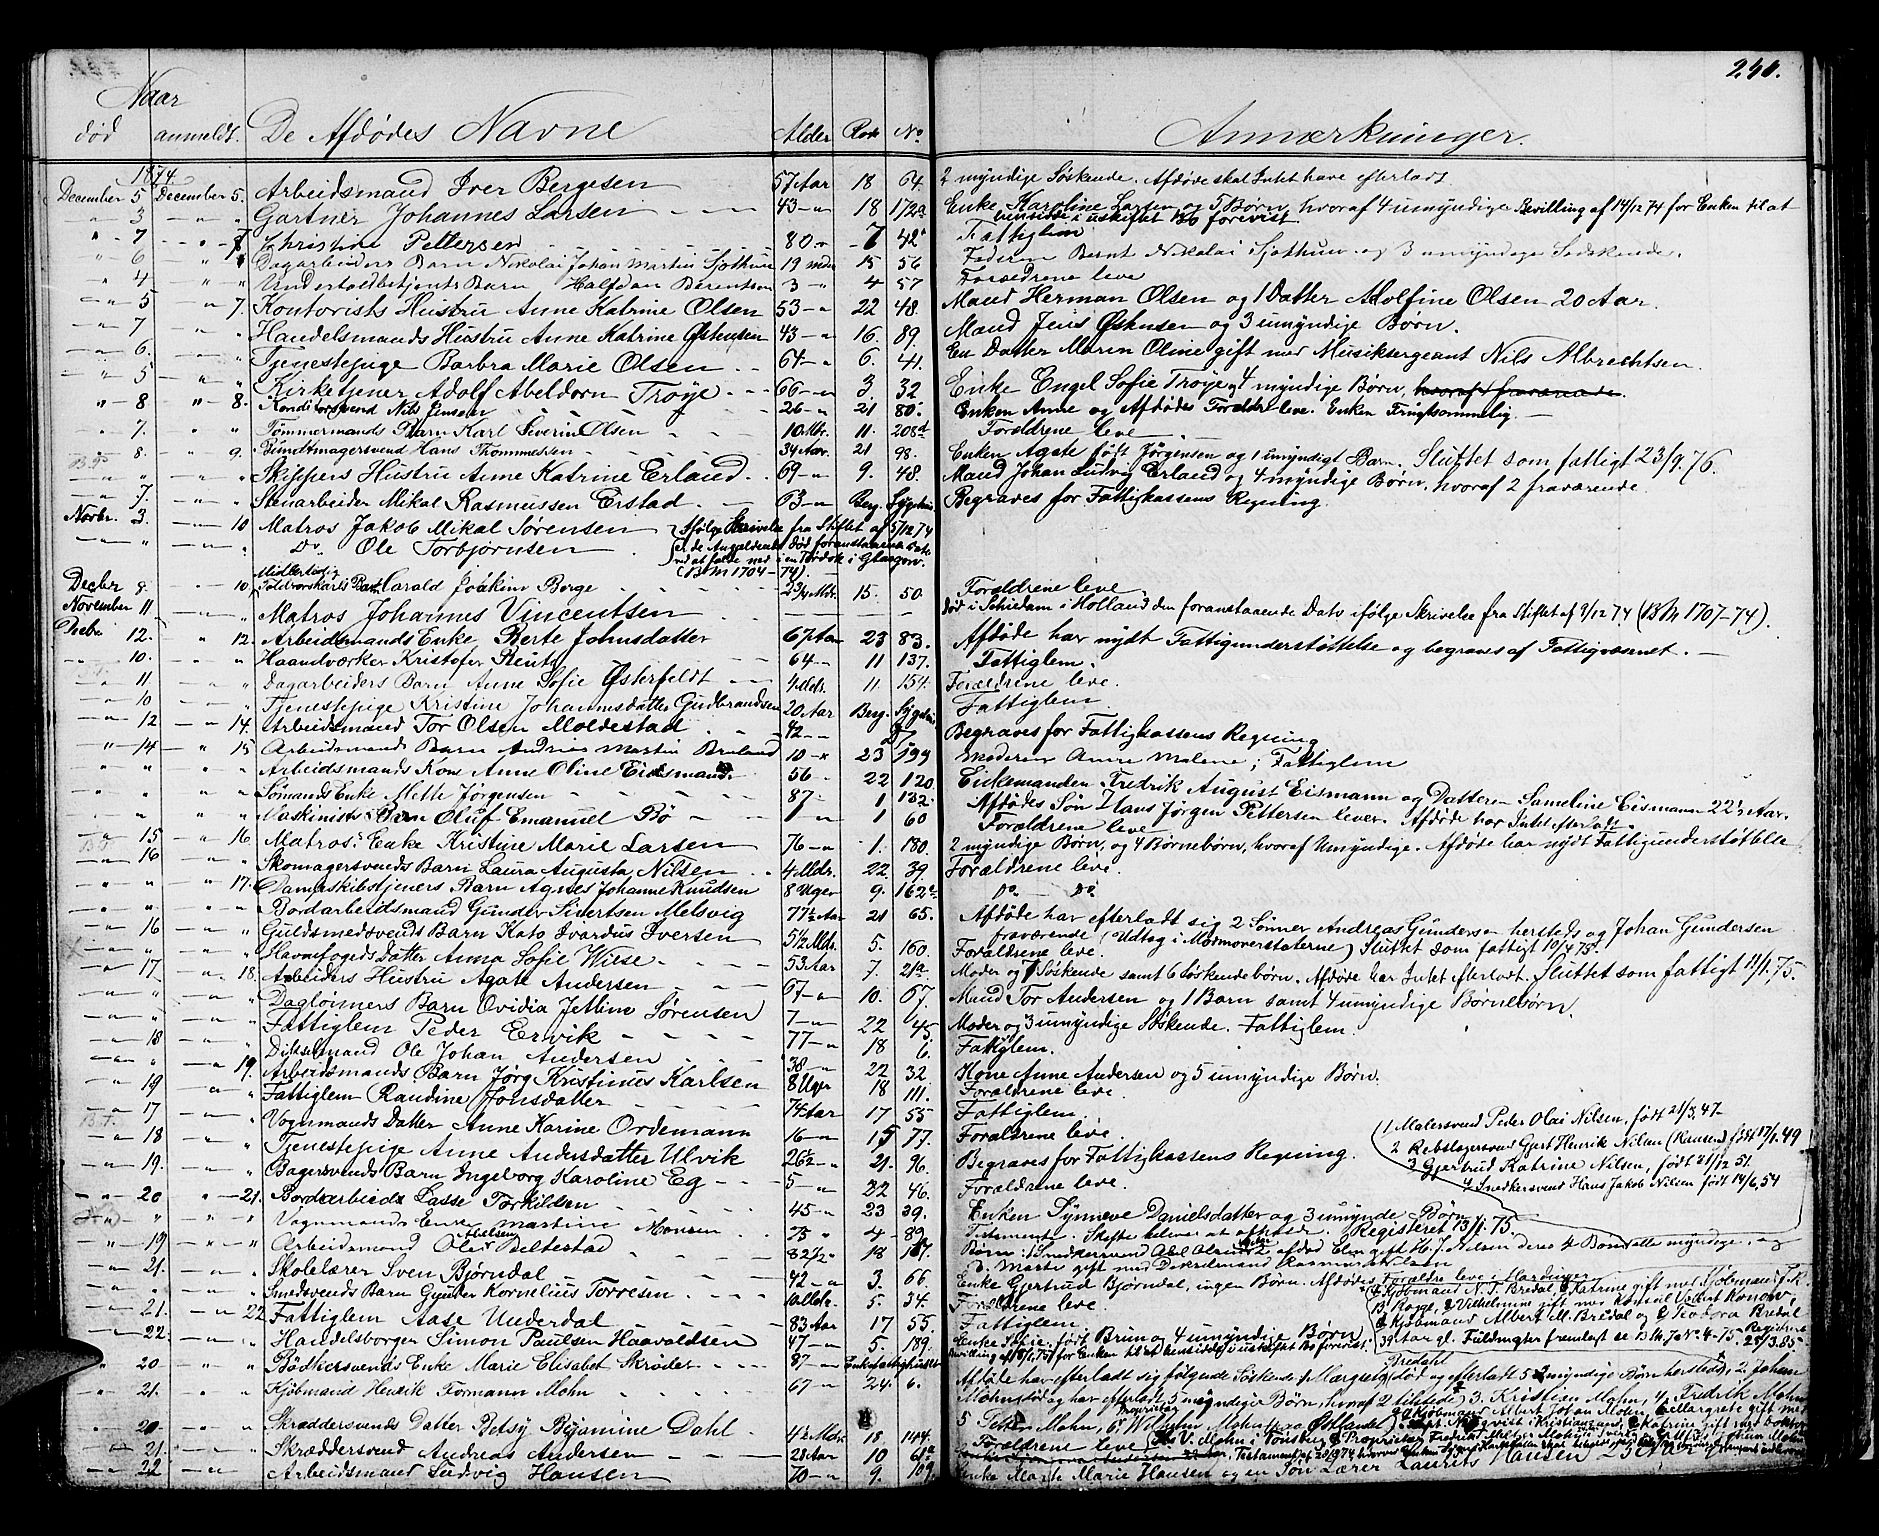 240.
Naar
død anmeldt. De Afdødes Navne Alder Rode No Anmærkninger.
1874
December 5 December 5. Arbeidsmand Iver Bergesen 57 Aar 18 64. 2 myndige Søskende. Afdøde skal Intet have efterladt.
" 3 " " Gartner Johannes Larsen 43 " 18 172a Enke Karoline Larsen og 5 Børn, hvoraf 4 umyndige. Bevilling af 14/12 74 for Enken til at
hensidde i uskiftet Bo forevist
" 7 " 7 Christine Pettersen 80 " 7 42 Fattiglem
" 6 " " Dagarbeiders Barn Nikolai Johan Martin Sjøthun 19 mdr 15 56 Faderen Bernt Nikolai Sjøthun og 3 umyndige Sødskende.
" 4 " " Undertoldbetjents Barn Halfdan Berentsen 3 " 4 57 Forældrene leve
" 5 " 7. Kontorists Hustru Anne Katrine Olsen 53 " 22 48. Mand Herman Olsen og 1 Datter Adolfine Olsen 20 Aar.
" 7 " " Handelsmands Hustru Anne Katrine Østensen 43 " 16. 89. Mand Jens Østensen og 3 umyndige Børn.
" 6. " " Tjenestepige Barbra Marie Olsen 64 " 6. 41. En Datter Maren Oline gift med Musiksergeant Nils Albrechtsen.
" 5 " " Kirketjener Adolf Abeldorn Trøye 66 " 3. 32 Enke Engel Sofie Trøye og 4 myndige Børn, hvoraf fraværende.
" 8 " 8. Konditorsvend Nils Jensen 26 " 21 80. Enken Anne og Afdødes Forældre leve. Enken Frugtsommelig.
" 7. " " Tømmermands Barn Karl Severin Olsen 10 Mdr. 11. 208d Forældrene leve
" 8. " 9. Bundtmagersvend Hans Thommesen 34 Aar. 21 98. Enken Agate født Jørgensen og 1 umyndigt Barn. Sluttet som fattigt 23/9. 76.
" " " " Skippers Hustru Anne Katrine Erland 69 " 9. 48. Mand Johan Ludvig Erland og 4 myndige Børn, hvoraf 2 fraværende.
" 7. " " Stenarbeider Mikal Rasmussen Eistad 63 " Berg. Sygehus Begraves for Fattigkassens Regning.
Novbr. 3. " 10 Matros Jakob Mikal Sørensen Ifølge Skrivelse fra Stiftet af 5/12 74
" " " Do Ole Torbjørnsen er de Angjældende død foranstaaende Dato
ved at falde ned i en Tørdok i Glasgow.
(B M 1704-74).
Decbr 8. " 10. Midlertidig Toldvorskarls Barn Harald Joakim Borge 2 3/4 Mdr. 15. 50. Forældrene leve
November 11 " " Matros Johannes Vincentsen død i Schiedam i Holland den foranstaaende Dato ifølge Skrivelse fra Stiftet af 9/12 74 (BM 1707-74).
Decbr 12. " 12. Arbeidsmands Enke Berte Johnsdatter 67 Aar 23 83. Afdøde har nydt Fattigunderstøttelse og begraves af Fattigvæsenet.
" 10. " " Haandværker Kristofer Reut 64 " 11 137. Fattiglem.
" 11. " " Dagarbeiders Barn Anne Sofie Østerfeldt 4 Mdr. 11. 154. Forældrene leve.
" 10 " " Tjenestepige Kristine Johannsdatter Gudbrandsen 20 Aar Berg. Sygehus Fattiglem.
" 12 " 14. Arbeidsmand Tor Olsen Moldestad 42 " Begraves for Fattigkassens Regning
" 14 " 15 Arbeidsmands Barn Andreas Martin Bruland 10 " 23 199 Moderen Anne Malene; Fattiglem
" " " " Arbeidsmands Kone Anne Oline Eismand. 56 " 22 120 Enkemanden Fredrik August Eismann og Datteren Sameline Eismann 22 1/2 Aar.
" " " " Sømands Enke Mette Jørgensen 87 " 1 132. Afdødes Søn Hans Jørgen Pettersen lever. Afdøde har Intet efterladt
" " " " Maskinists Barn Oluf Emanuel Bø 1 " 1 60 Forældrene leve
" 15 " 16 Matros's Enke Kristine Marie Larsen 76 " 1. 180 2 myndige Børn, og 4 Børnebørn, hvoraf Umyndige. Afdøde har nydt Fattigunderstøttelse
" 16 " " Skomagersvends Barn Laura Augusta Nilsen 4 Mdr. 22 39. Forældrene leve.
" " " 17. Damskibstjeners Barn Agnes Johanne Knudsen 8 Uger 9. 162c Do Do
" " " " Bordarbeidsmand Gunder Sivertsen Melsvig 77 1/2 Aar 21 65. Afdøde har efterladt sig 2 Sønner Andreas Gundersen hersteds og Johan Gundersen
fraværende (Udtog i Mormonerstaterne) Sluttet som fattigt 10/4 75.
" 16 " " Guldsmedsvends Barn Kato Ivardus Iversen 5 1/2 Mdr. 5. 160. Forældrene leve.
" " " " Havnefogeds Datter Anna Sofie Wiese 53 Aar 7. 21a Moder og 7 Søskende samt 6 Søskendebørn. Afdøde har Intet efterladt. Sluttet som fattigt 11/1. 75.
" 17 " 18. Arbeiders Hustru Agate Andersen 67 " 10. 67. Mand Tor Andersen og 1 Barn samt 4 umyndige Børnebørn.
" " " " Daglønners Barn Ovidia Jettine Sørensen 7 " 22 45 Moder og 3 umyndige Søskende. Fattiglem.
" " " " Fattiglem Peder Ervik 77 " 18 6. Fattiglem.
" 18 " " Dikselmand Ole Johan Andersen 38 " 22 32 Kone Anne Andersen og 5 umyndige Børn.
" " " 19. Arbeidsmands Barn Jørg Kristinus Karlsen 8 Uger 18 111. Forældrene leve.
" 19 " " Fattiglem Randine Jonsdatter 74 Aar 17 55 Fattiglem.
" 17 " " Vognmands Datter Anne Karine Ordemann 16 " 15 77. Forældrene leve.
" 18 " " Tjenestepige Anne Andersdatter Ulvik 26 1/2 " 21. 96. Begraves for Fattigkassens Regning.
1 Malersvend Peder Olai Nilsen, født 21/3. 47.
2 Rebslagersvend Gjert Henrik Nilsen (Knudsen) født 17/1. 49
3 Gjertrud Katrine Nilsen, født 21/12 51.
4 Snedkersvend Hans Jakob Nilsen født 14/6. 54
" 19. " " Bagersvends Barn Ingeborg Karoline Eg 5 " 22 46. Forældrene leve.
" 20 " 21. Bordarbeider Lasse Torkildsen 45 " 23 39. Enken Synneve Danielsdatter og 3 umyndige Børn
" " " " Vognmands Enke Martine Monsen 75 " 4 89. Testamente. Skifte bliver at afholde. Registeret 13/1. 75.
" 19 " " Arbeidsmand Ole Abelsen Beltestad 82 1/2 " 18 187. Børn: 1 Snedkersvend Abel Olsen 2, afdød Elen gift H. J. Nilsen deres 4 Børn alle myndige, og
3. Marte gift med Dikselmand Rasmus Nilsen
" 21. " " Skolelærer Sven Bjørndal 42 " 3. 66. Enke Gjertrud Bjørndal, ingen Børn. Afdødes Forældre leve i Hardanger
" " " " Smedsvends Barn Gunder Kornelius Torresen 10 Mdr. 5. 34. Forældrene leve.
" 21. " 22 Fattiglem Aase Underdal 83 Aar 17 55 Fattiglem.
" 22. " " Handelsborger Simon Paulsen Haavaldsen 47 " 5. 189. Enke Sofie født Bruun og 4 umyndige Børn
for Enken til at hensidde i uskiftet Bo forevist.
" 20 " " Bødkersvends Enke Marie Elisabet Skrøder 87 " Enkefattighuset
" 21. " " Kjøbmand Henrik Formann Mohn 67 " 24. 6. Afdøde har efterladt sig følgende Søskende 1, Margrete Bredahl død og efterladt 5 myndige Børn herstedes, 2. Johan
Mohn død og har efterladt 5 myndige Børn, hvoraf 2 tilstede, 3. Kristian Mohn, 4, Fredrik Mohn
" 20 " " Skræddersvends Datter Betsy Benjamine Dahl 4 1/2 Mdr. 18 144. Forældrene leve
" 21. " " Skræddersvend Andreas Andersen 28 Aar 10 61a
" 22 " " Arbeidsmand Ludvig Hansen 70 " 9. 109. Enke Marte Marie Hansen og en Søn Lærer Laurits Hansen